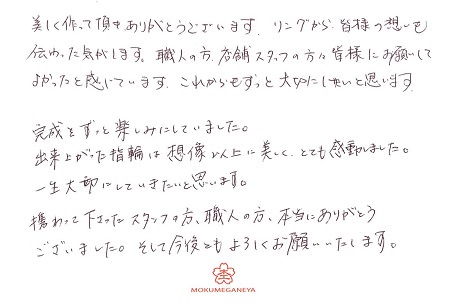 美しく作って頂きありがとうございます。リングから皆様の想いも
伝わった気がします。職人の方、店舗スタッフの方々皆様にお願いして
よかったと感じています。これからもずっと大切にしたいと思います。
完成をずっと楽しみにしていました。
出来上がった指輪は想像以上に美しく、とても感動しました。
一生大切にしていきたいと思います。
携わって下さったスタッフの方、職人の方、本当にありがとう
ございました。そして今後ともよろしくお願いいたします。
MOKUMEGANEYA